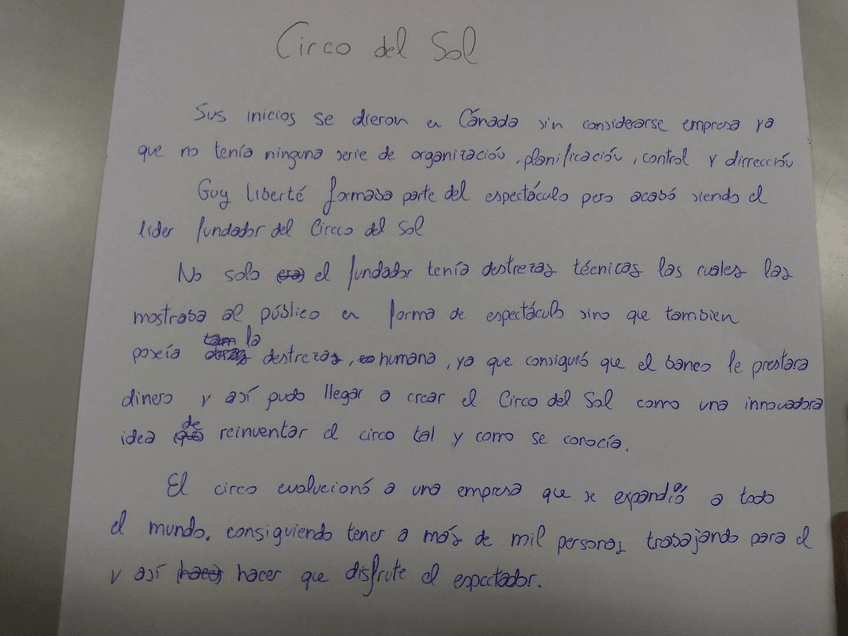 Circo del Sol
Sus inicios se dieron en Cánada sin considerarse empresa ya
que no tenía ninguna serie de organización, planificación, control y dirrección
Guy Liberté formaba parte del espectáculo pero acabó siendo el
lider fundador del Circco del Sol
No solo el fundador tenía destrezas técnicas las cuales las
mostraba al público en forma de espectáculo sino que tambien
poseía la destrezas, humana, ya que consiguió que el banco le prestara
dinero y así pudo llegar a crear el Circo del Sol como una innovadora
idea de reinventar el circo tal y como se conocía.
El circo evolucionó a una empresa que se expandió a todo
el mundo, consiguiendo tener a más de mil personas trabajando para el
y así hacer que disfrute el espectador.